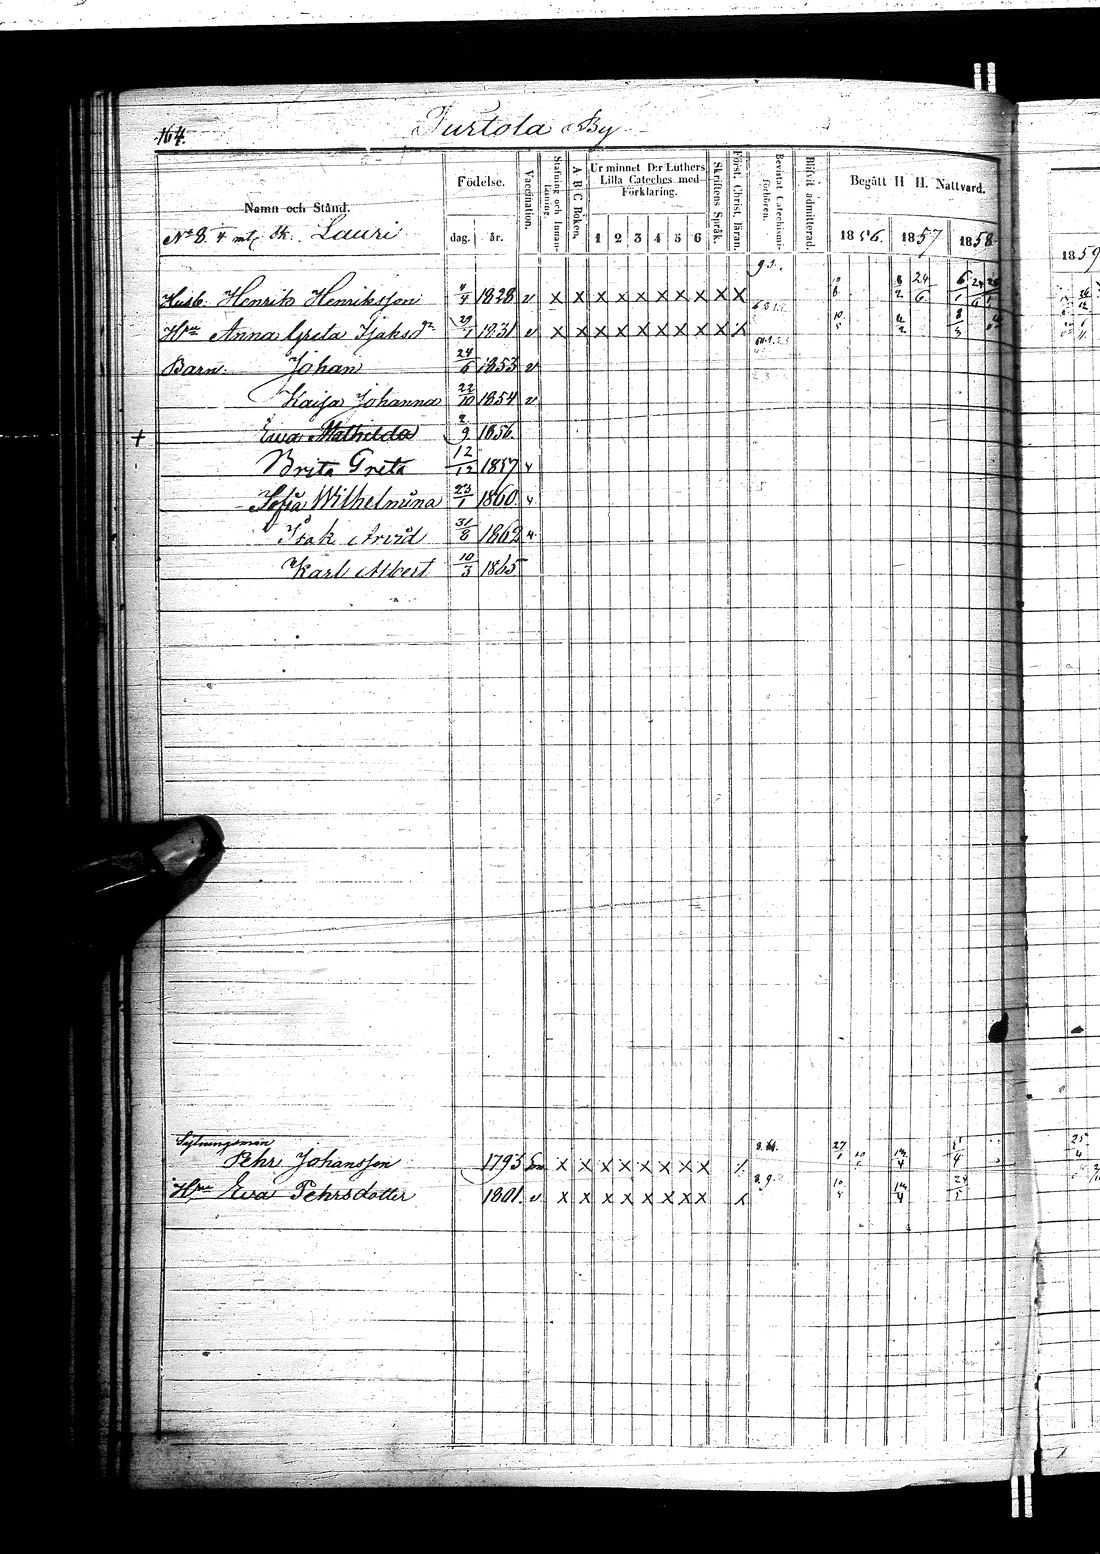 164.
Turtola By
Namn och Stånd.
Födelse.
dag.
år.
Vaccination.
Stafning och Innan-läsning.
A B C Boken.
Ur minnet D:r Luthers
Lilla Cateches med
Förklaring.
1 2 3 4 5 6
Skriftens Språk.
Först. Christ. läran.
Bevistat Catechismi-förhören.
Blifvit admitterad.
Begått H H. Nattvard.
1856. 1857 1858
1859
No 8. 4 mtl Sk. Lauri
Husb. Henrik Henriksson 4/4 1828 v x x x x x x x x x x
Hru Anna Greta Isaksdr 29/1 1831 v x x x x x x x x x x
Barn. Johan 24/6 1853 v
Kaisa Johanna 22/10 1854 v
+ Ewa Mathilda 2/9 1856.
Brita Greta 12/12 1857 v
Sofia Wilhelmina 23/1 1860 v
Isak Arvid 31/8 1862 v
Karl Albert 10/3 1865
Sytningsman
Pehr Johansson 1793 x x x x x x x x
Hru Ewa Pehrsdotter 1801. v x x x x x x x x x